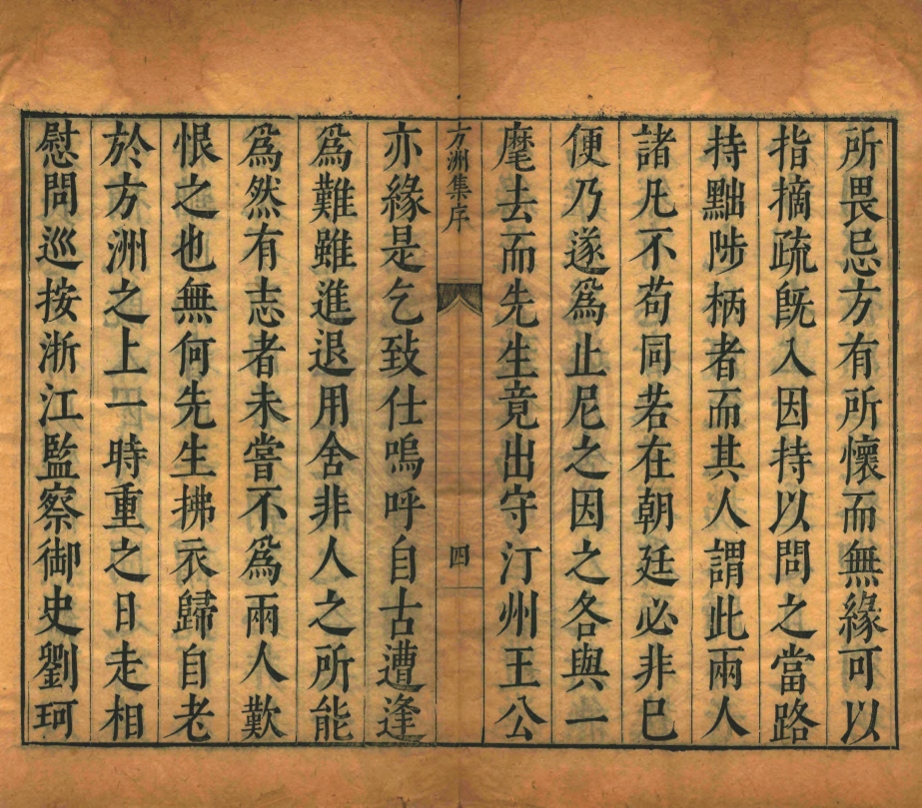 所畏忌方有所懷而無緣可以
指摘疏旣入因持以問之當路
持黜陟柄者而其人謂此兩人
諸凡不苟同若在朝廷必非巳
便乃遂爲止尼之因之各與一
麾去而先生竟出守汀州王公
方洲集序
四
亦緣是乞致仕嗚呼自古遭逢
爲難雖進退用舍非人之所能
爲然有志者未嘗不爲兩人歎
恨之也無何先生拂衣歸自老
於方洲之上一時重之日走相
慰問巡按浙江監察御史劉珂